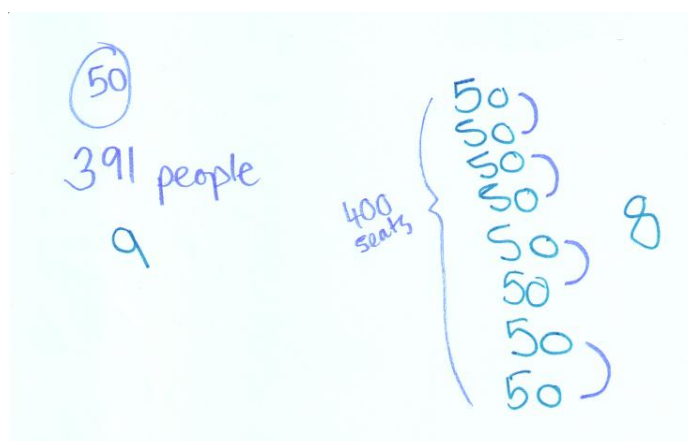 50
391 people
9
400
seats
50
50
50
50
50
50
50
50
8